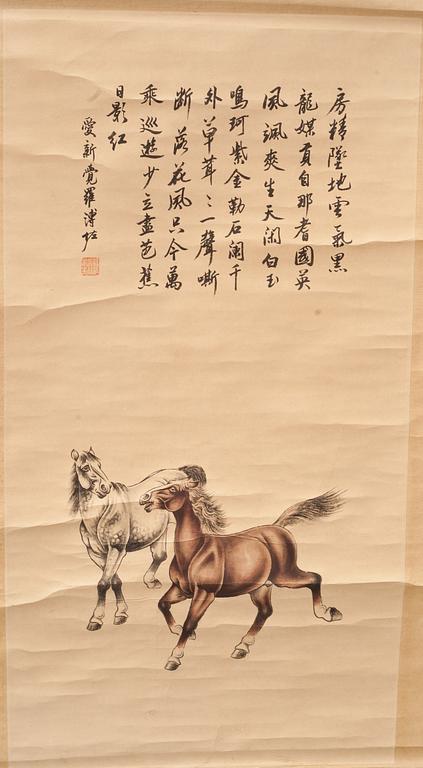 房精墜地雲氣黑
龍媒貢自那耆國英
風颯爽生天閑白玉
鳴珂紫金勒石闌干
外草茸茸一聲嘶
斷落花風只今萬
乘巡遊少立盡芭蕉
日影紅
愛新覺羅溥佐